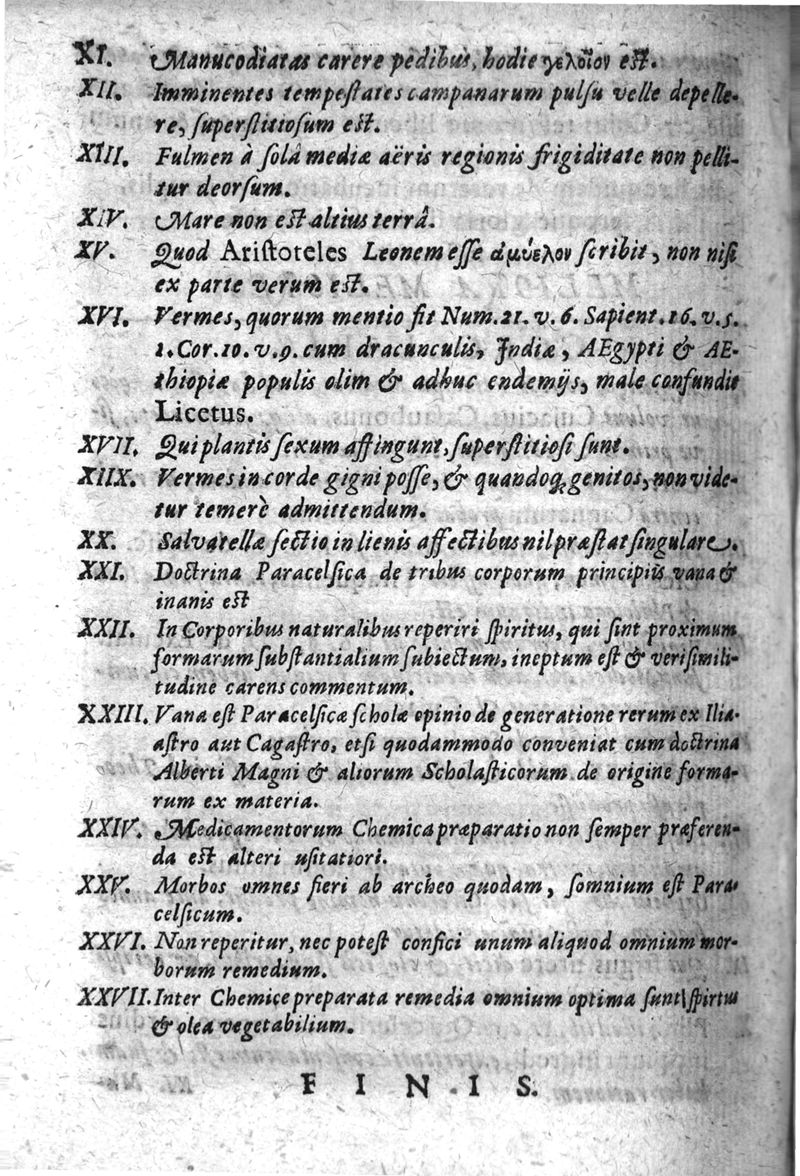 XI. Manucodiatas carere pedibus, hodie γελοῖον est.
XII. Imminentes tempestates campanarum pulsu velle depelle-
re, superstitiosum est.
XIII. Fulmen à solâ mediæ aëris regionis frigiditate non pelli-
tur deorsum.
XIV. Mare non est altius terrâ.
XV. Quod Aristoteles Leonem esse ἀμύελον scribit, non nisi
ex parte verum est.
XVI. Vermes, quorum mentio fit Num. 21. v. 6. Sapient. 16. v. 5.
1. Cor. 10. v. 9. cum dracunculis, Indiæ, AEgypti & AE-
thiopiæ populis olim & adhuc endemijs, male confundit
Licetus.
XVII. Qui plantis sexum affingunt, superstitiosi sunt.
XIIX. Vermes in corde gigni posse, & quandoq; genitos, non vide-
tur temerè admittendum.
XX. Salvatellæ sectio in lienis affectibus nil præstat singulare.
XXI. Doctrina Paracelsica de tribus corporum principiis vana &
inanis est
XXII. In Corporibus naturalibus reperiri spiritus, qui sint proximum
formarum substantialium subiectum, ineptum est & verisimili-
tudine carens commentum.
XXIII. Vana est Paracelsicæ scholæ opinio de generatione rerum ex Ilia-
astro aut Cagastro, etsi quodammodo conveniat cum doctrina
Alberti Magni & aliorum Scholasticorum de origine forma-
rum ex materia.
XXIV. Medicamentorum Chemica præparatio non semper præferen-
da est alteri usitatiori.
XXV. Morbos omnes fieri ab archeo quodam, somnium est Para-
celsicum.
XXVI. Non reperitur, nec potest confici unum aliquod omnium mor-
borum remedium.
XXVII. Inter Chemice preparata remedia omnium optima sunt spirtus
& olea vegetabilium.
FINIS.